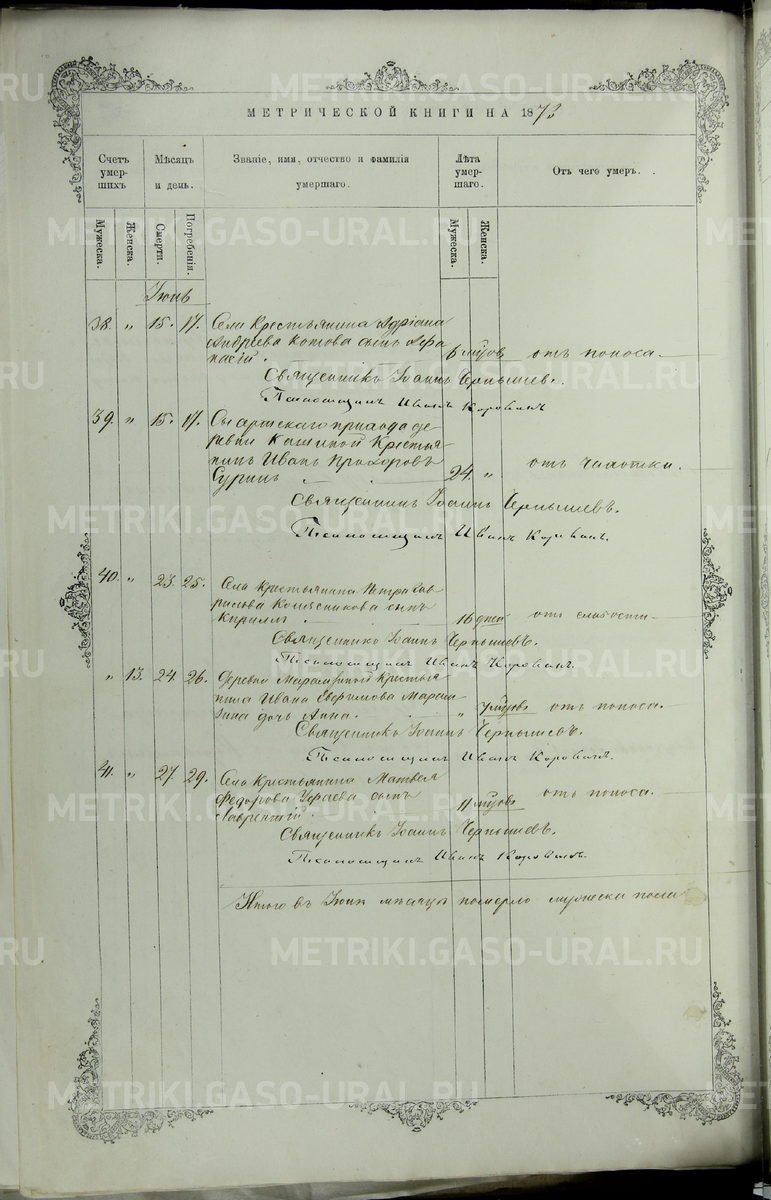 МЕТРИЧЕСКОЙ КНИГИ НА 1873
Счетъ умер-шихъ
Мѣсяцъ и день.
Званіе, имя, отчество и фамилія умершаго.
Лѣта умер-шаго.
Отъ чего умеръ.
Мужеска.
Женска.
Смерти.
Погребенія.
Мужеска.
Женска.
Іюнь
38. „ 15. 17. Села Крестьянина Адріана
Андреева Котова сынъ Афа
насій. 6 мцовъ отъ поноса.
Священникъ Іоаннъ Чернышевъ.
Псаломщикъ Иванъ Коровинъ
39. „ 15. 17. Сысертскаго прихода де
ревни Кашиной Крестья
нинъ Иванъ Прохоровъ
Суринъ 24. „ отъ чахотки.
Священникъ Іоаннъ Чернышевъ.
Псаломщикъ Иванъ Коровинъ.
40. „ 23. 25. Села Крестьянина Петра Гав
рилова Колясникова сынъ
Кириллъ. 16 дней отъ слабости
Священникъ Іоаннъ Чернышевъ.
Псаломщикъ Иванъ Коровинъ.
„ 13. 24. 26. Деревни Марамзиной Крестья
нина Ивана Евфимова Марам
зина дочь Анна. „ 7 мцовъ отъ поноса.
Священникъ Іоаннъ Чернышевъ.
Псаломщикъ Иванъ Коровинъ.
41. „ 27. 29. Села Крестьянина Матвея
Федорова сынъ
Лаврентій. 11 мцовъ отъ поноса.
Священникъ Іоаннъ Чернышевъ.
Псаломщикъ Иванъ Коровинъ.
Итого въ Іюнѣ мѣсяцѣ померло мужеска пола
METRIKI.GASO-URAL.RU